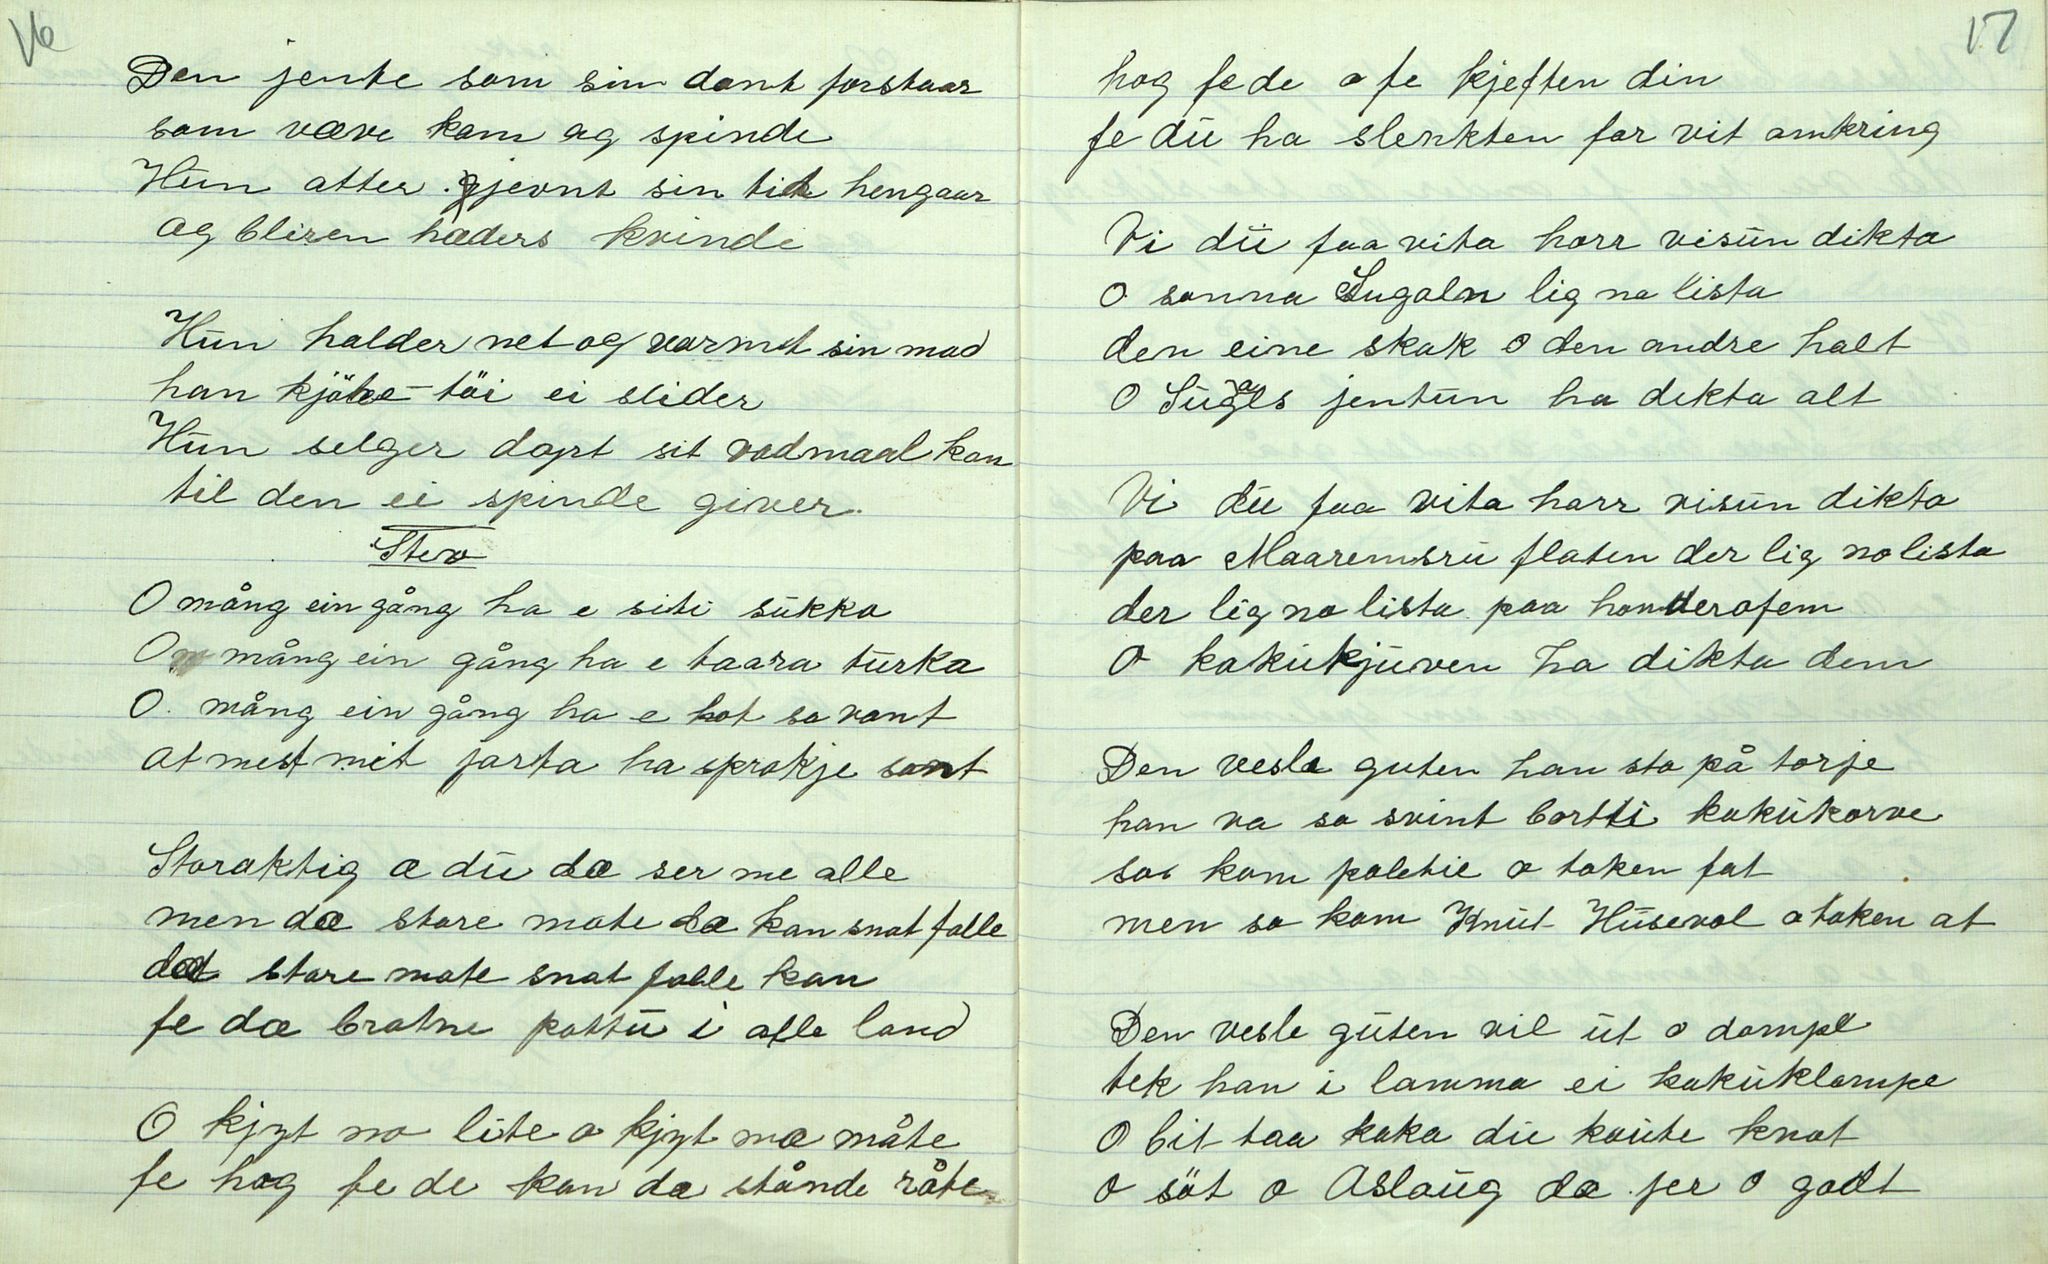 16
Den jente som sin dont forstaar
som væve kom og spinde
Hun atter gjevnt sin tid hengaar
og bliren hæders kvinde
Hun holder net og varmt sin mad
han kjöbe-töi ei slider
Hun selger dort sit vadmaal kan
til den ei spinde giver.
Stev
O mång ein gång ha e siti sükka
O mång ein gång ha e taara türka
O mång ein gång ha e hot so vont
at mest mit jarta ha sprokje sont
Storaktig æ dü dæ ser me alle
men dæ store mote dæ kan snat falle
dæt store mote snat falle kan
fe dæ brotne pottü i alle land
O kjyt no lite o kjyt mæ måte
fe hog fe de kan dæ stånde råte
17
hog fe de o fe kjeften din
fe dü ha slenkten for vit omkring
Vi dü faa vita horr visün dikta
O sonna Sugoln lig na lista
den eine skak o den andre halt
O Sügals jentün ha dekta alt
Vi dü faa vita horr visün dikta
paa Maaremsrü flaten der lig no lista
der lig no lista paa honderofem
O kakükjüven ha dikta dem
Den vesle guten han sto på torje
han va so svint bortti kakükorve
so kom poletie o token fat
men so kom Knüt Hüsevol o token at
Den vesle güten vil üt o dompe
tek han i lomma ei kaküklompe
O bit taa koka dü koüte knot
O söt o Aslaüg dæ fer o godt